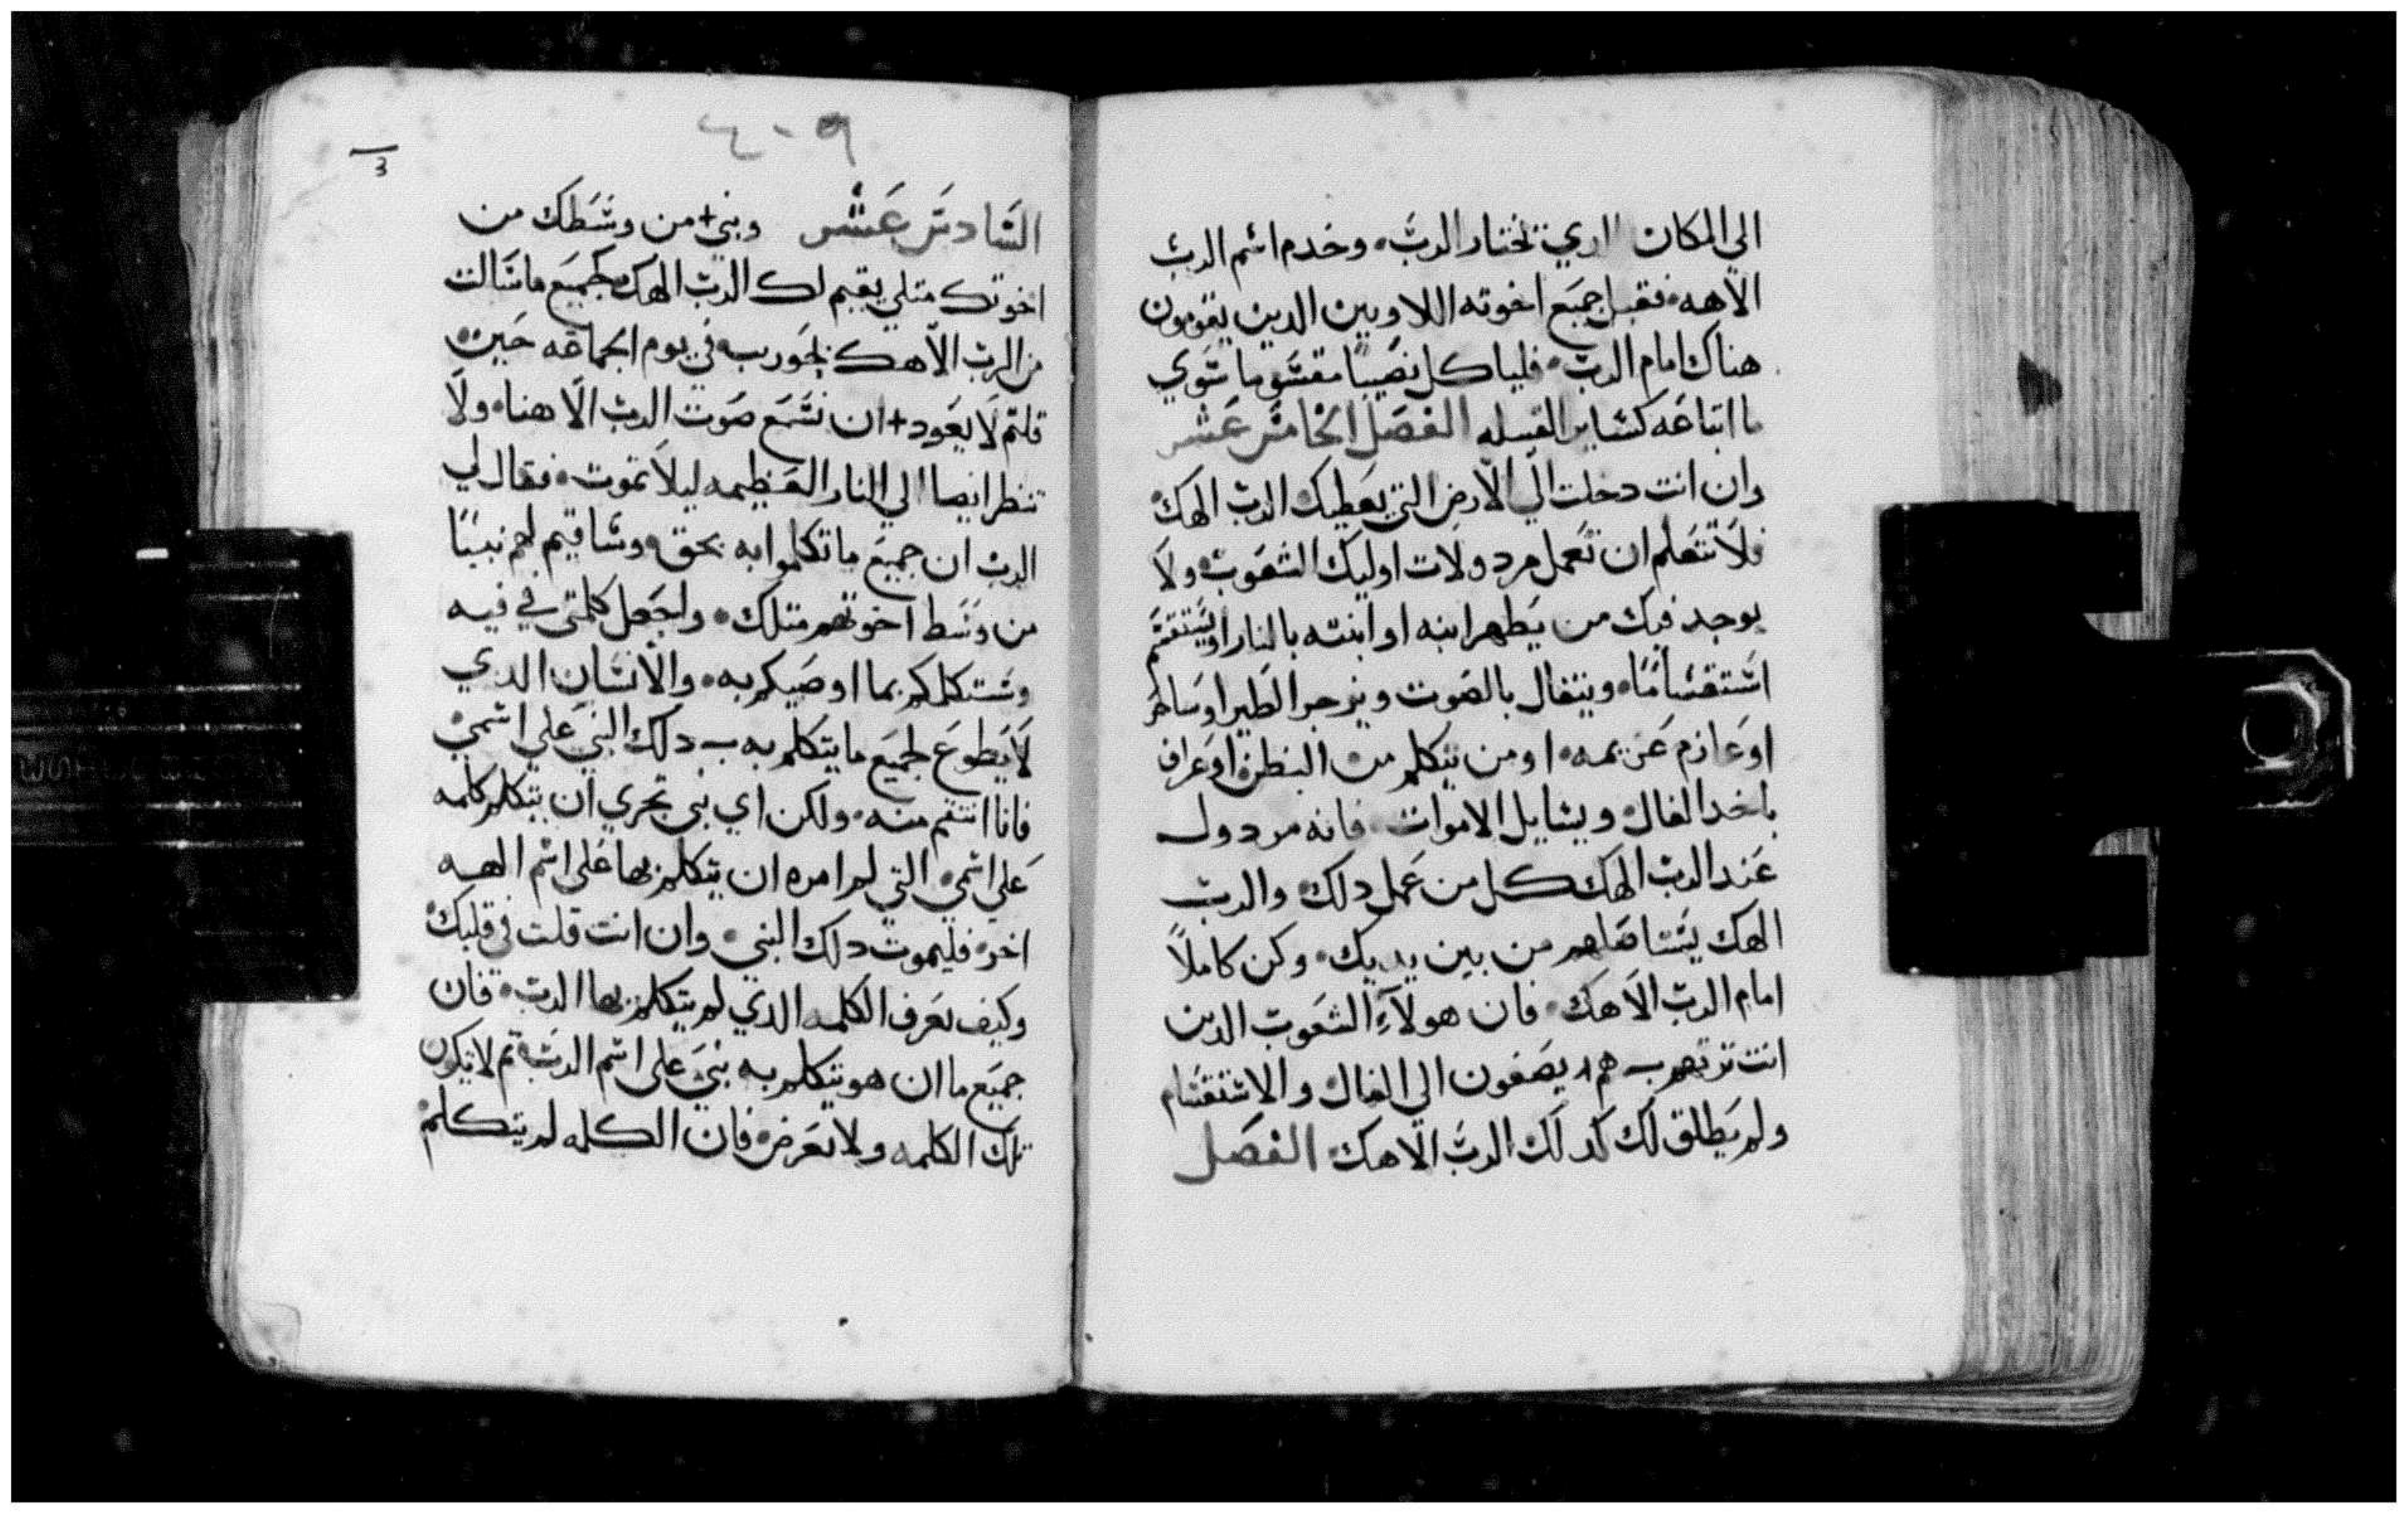 الى المكان الدي تختار الرب٠ وخدم اسم الرب
الاهه٠ فقبل جميع اخوته اللاويين الدين يقومون
هناك امام الرب٠ فلياكل نصيبًا مقسوما سوي
ما ابتاعه كساير القبيله الفصل الخامس عشر
وان انت دخلت الي الارض التي يعطيك الرب الهك٠
فلا تتعلم ان تعمل مردولات اوليك الشعوب٠ ولا
يوجد فيك من يطهر ابنه او ابنته بالنار او يستقسم
استقسامًا٠ ويتفال بالصوت ويزجر الطير او ساحر
او عازم عزيمه٠ او من يتكلم من البطن٠ او عراف
ياخد الفال٠ ويسايل الاموات٠ فانه مردول
عند الرب الهك كل من عمل دلك٠ والرب
الهك يستاصلهم من بين يديك٠ وكن كاملاً
امام الرب الاهك٠ فان هولاء الشعوب الدين
انت ترتهم هم يصغون الي الفال والاستقسام
ولم يطلق لك كدلك الرب الاهك٠ الفصل
٤٠٩
3
السادس عشر ونبي+ من وسطك من
اخوتك متلي يقيم لك الرب الهك٠ كجميع ما سالت
من الرب الاهك بحوريب في يوم الجماعه حين
قلتم لا يعود+ ان نسمع صوت الرب الاهنا٠ ولا
ننظر ايضا الي النار العظيمه ليلا نموت٠ فقال لي
الرب ان جميع ما تكلموا به بحق٠ وساقيم لهم نبيًا
من وسط اخوتهم متلك٠ واجعل كلمتي في فيه
وستكلمكم بما اوصيكم به٠ والانسان الدي
لا يطوع لجميع ما يتكلم به دلك النبي علي اسمي
فانا انتقم منه٠ ولكن اي نبي تجري ان يتكلم كلمه
علي اسمي٠ التي لم امره ان يتكلم بها علي اسم الهه
اخر٠ فليموت دلك النبي٠ وان انت قلت في قلبك٠
وكيف نعرف الكلمه الدي لم يتكلم بها الرب٠ فان
جميع ما ان هو يتكلم به نبي علي اسم الرب٠ تم لا تكون
تلك الكلمه ولا تعرض٠ فان الكلمه لم يتكلم